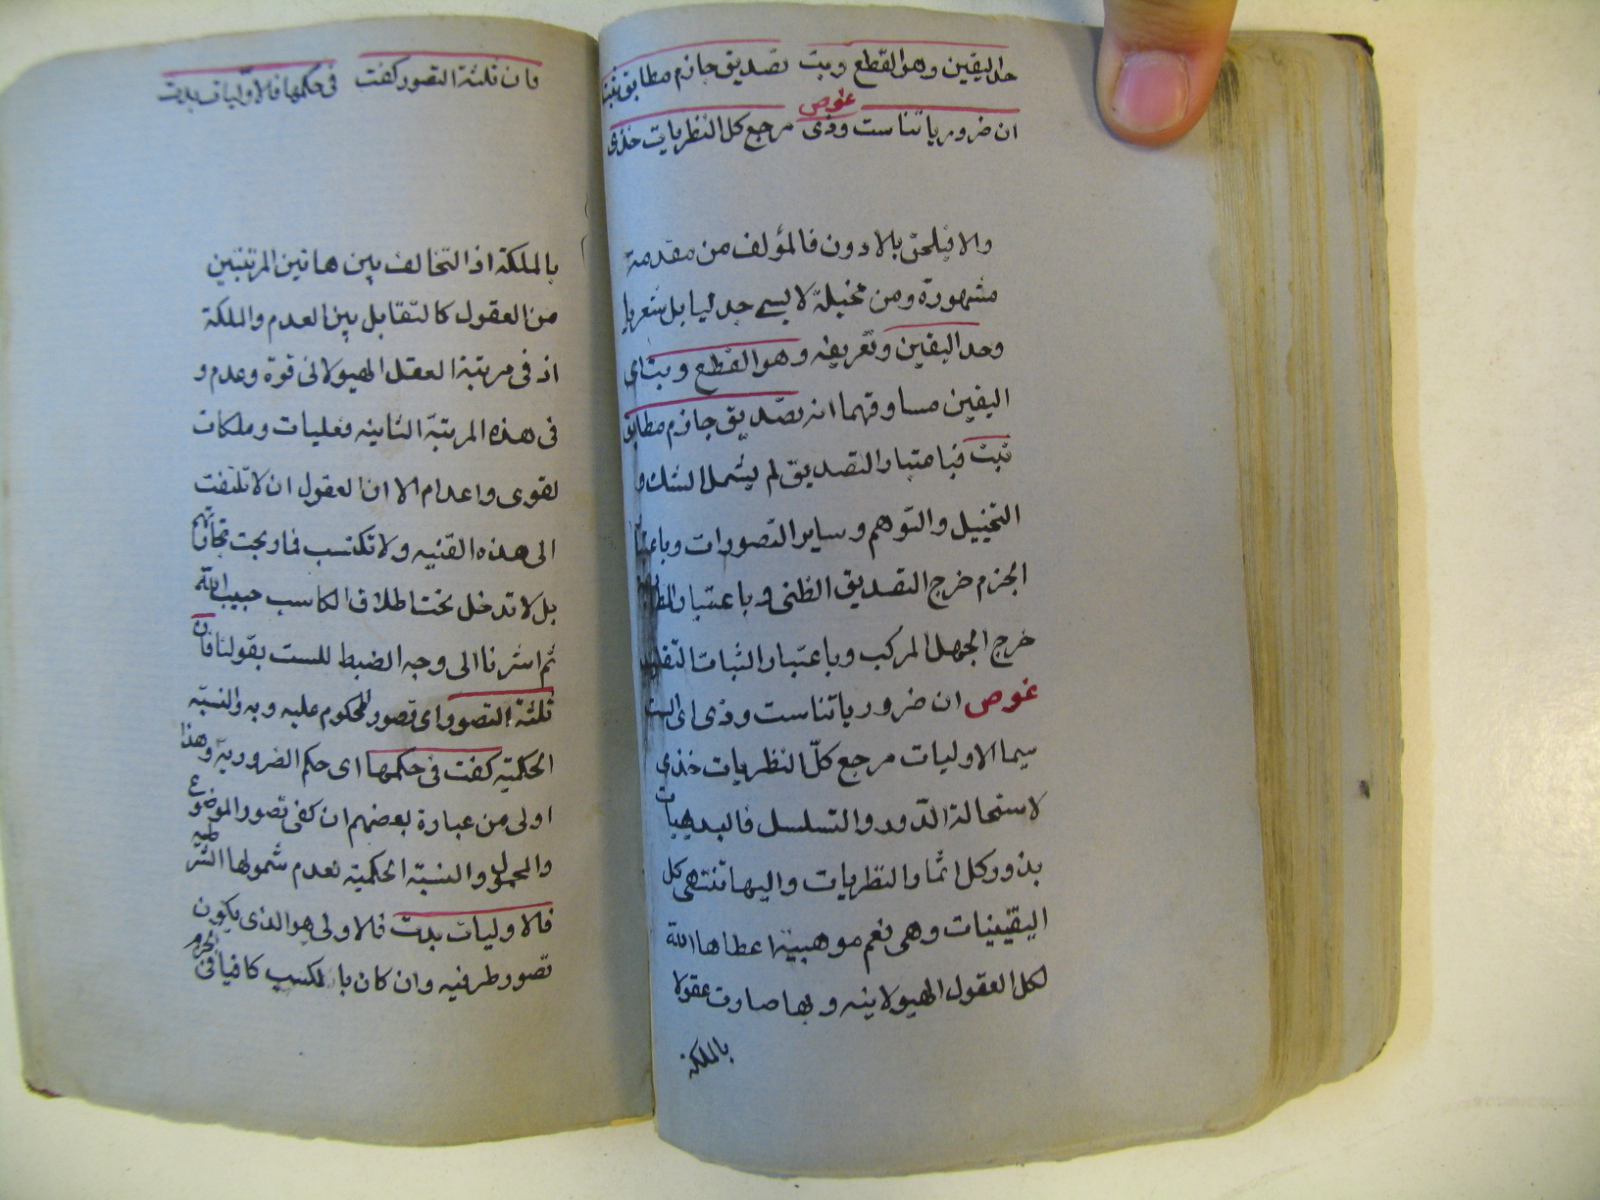 حد اليقين وهو القطع وبت تصديق جازم مطابق ثبت
غوص
ان ضرورياتنا ست وذى مرجع كل النظريات خذى
والا فيلحق بالادون فالمؤلف من مقدمة
مشهورة ومن مخيلة لا يسمى جدليا بل شعريا
وحد اليقين وتعريفه وهو القطع وبت اى
اليقين مساوقهما انه تصديق جازم مطابق
ثبت فباعتبار التصديق لم يشمل الشك و
التخييل والتوهم وساير التصورات وباعتبار
الجزم خرج التصديق الظنى و باعتبار المطابقة
خرج الجهل المركب وباعتبار الثبات التقليد
غوص ان ضرورياتنا ست وذى اى الست
سيما الاوليات مرجع كلّ النظريات خذى
لاستحالة الدّور والتسلسل فالبديهيات
بذور كل اثمار النظريات واليها تنتهى كل
اليقينيات وهى نعم موهبية اعطاها الله
لكل العقول الهيولاينه و بها صارت عقولا
بالملكة
فان ثلثة التصور كفت فى حكمها فلاوّليات بدت
بالملكة اذ التخالف بين هاتين المرتبتين
من العقول كالتقابل بين العدم والملكة
اذ فى مرتبة العقل الهيولانى قوة وعدم و
فى هذه المرتبة الثانيه فعليات وملكات
لقوى واعدام الا ان العقول ان لا تلتفت
الى هذه القنيه ولا تكتسب فما ربحت تجارتهم
بل لا تدخل تحت اطلاق الكاسب حبيب الله
ثم اشرنا الى وجه الضبط للست بقولنا فان
ثلثة التصور اى تصور المحكوم عليه وبه والنسبة
الحكمية كفت فى حكمها اى حكم الضرورية وهذا
اولى من عبارة بعضهم ان كفى تصور الموضوع
والمحمول والنسبة الحكمية لعدم شمولها الشرطيه
فالاوليات بدت فالاولى هو الذى يكون
تصور طرفيه وان كان بالكسب كافيا فى الجزم